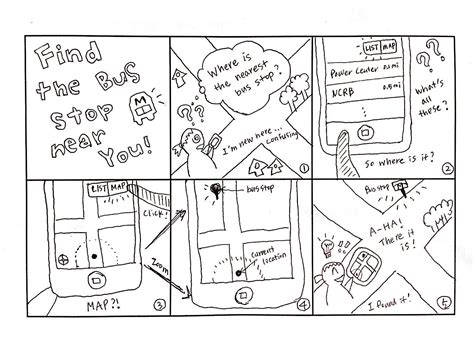 Find
the Bus
stop
near
You!
M
Where is
the nearest
bus stop?
??
I'm new here...
confusing
1
LIST MAP
Power Center 0.2mi
NCRB 0.5mi
??
What's
all
these?
So where is it?
2
LIST MAP
Click!
Zoom
MAP?!
3
bus stop
current
location
4
Bus stop
A-HA!
There it
is!
I found it!
5